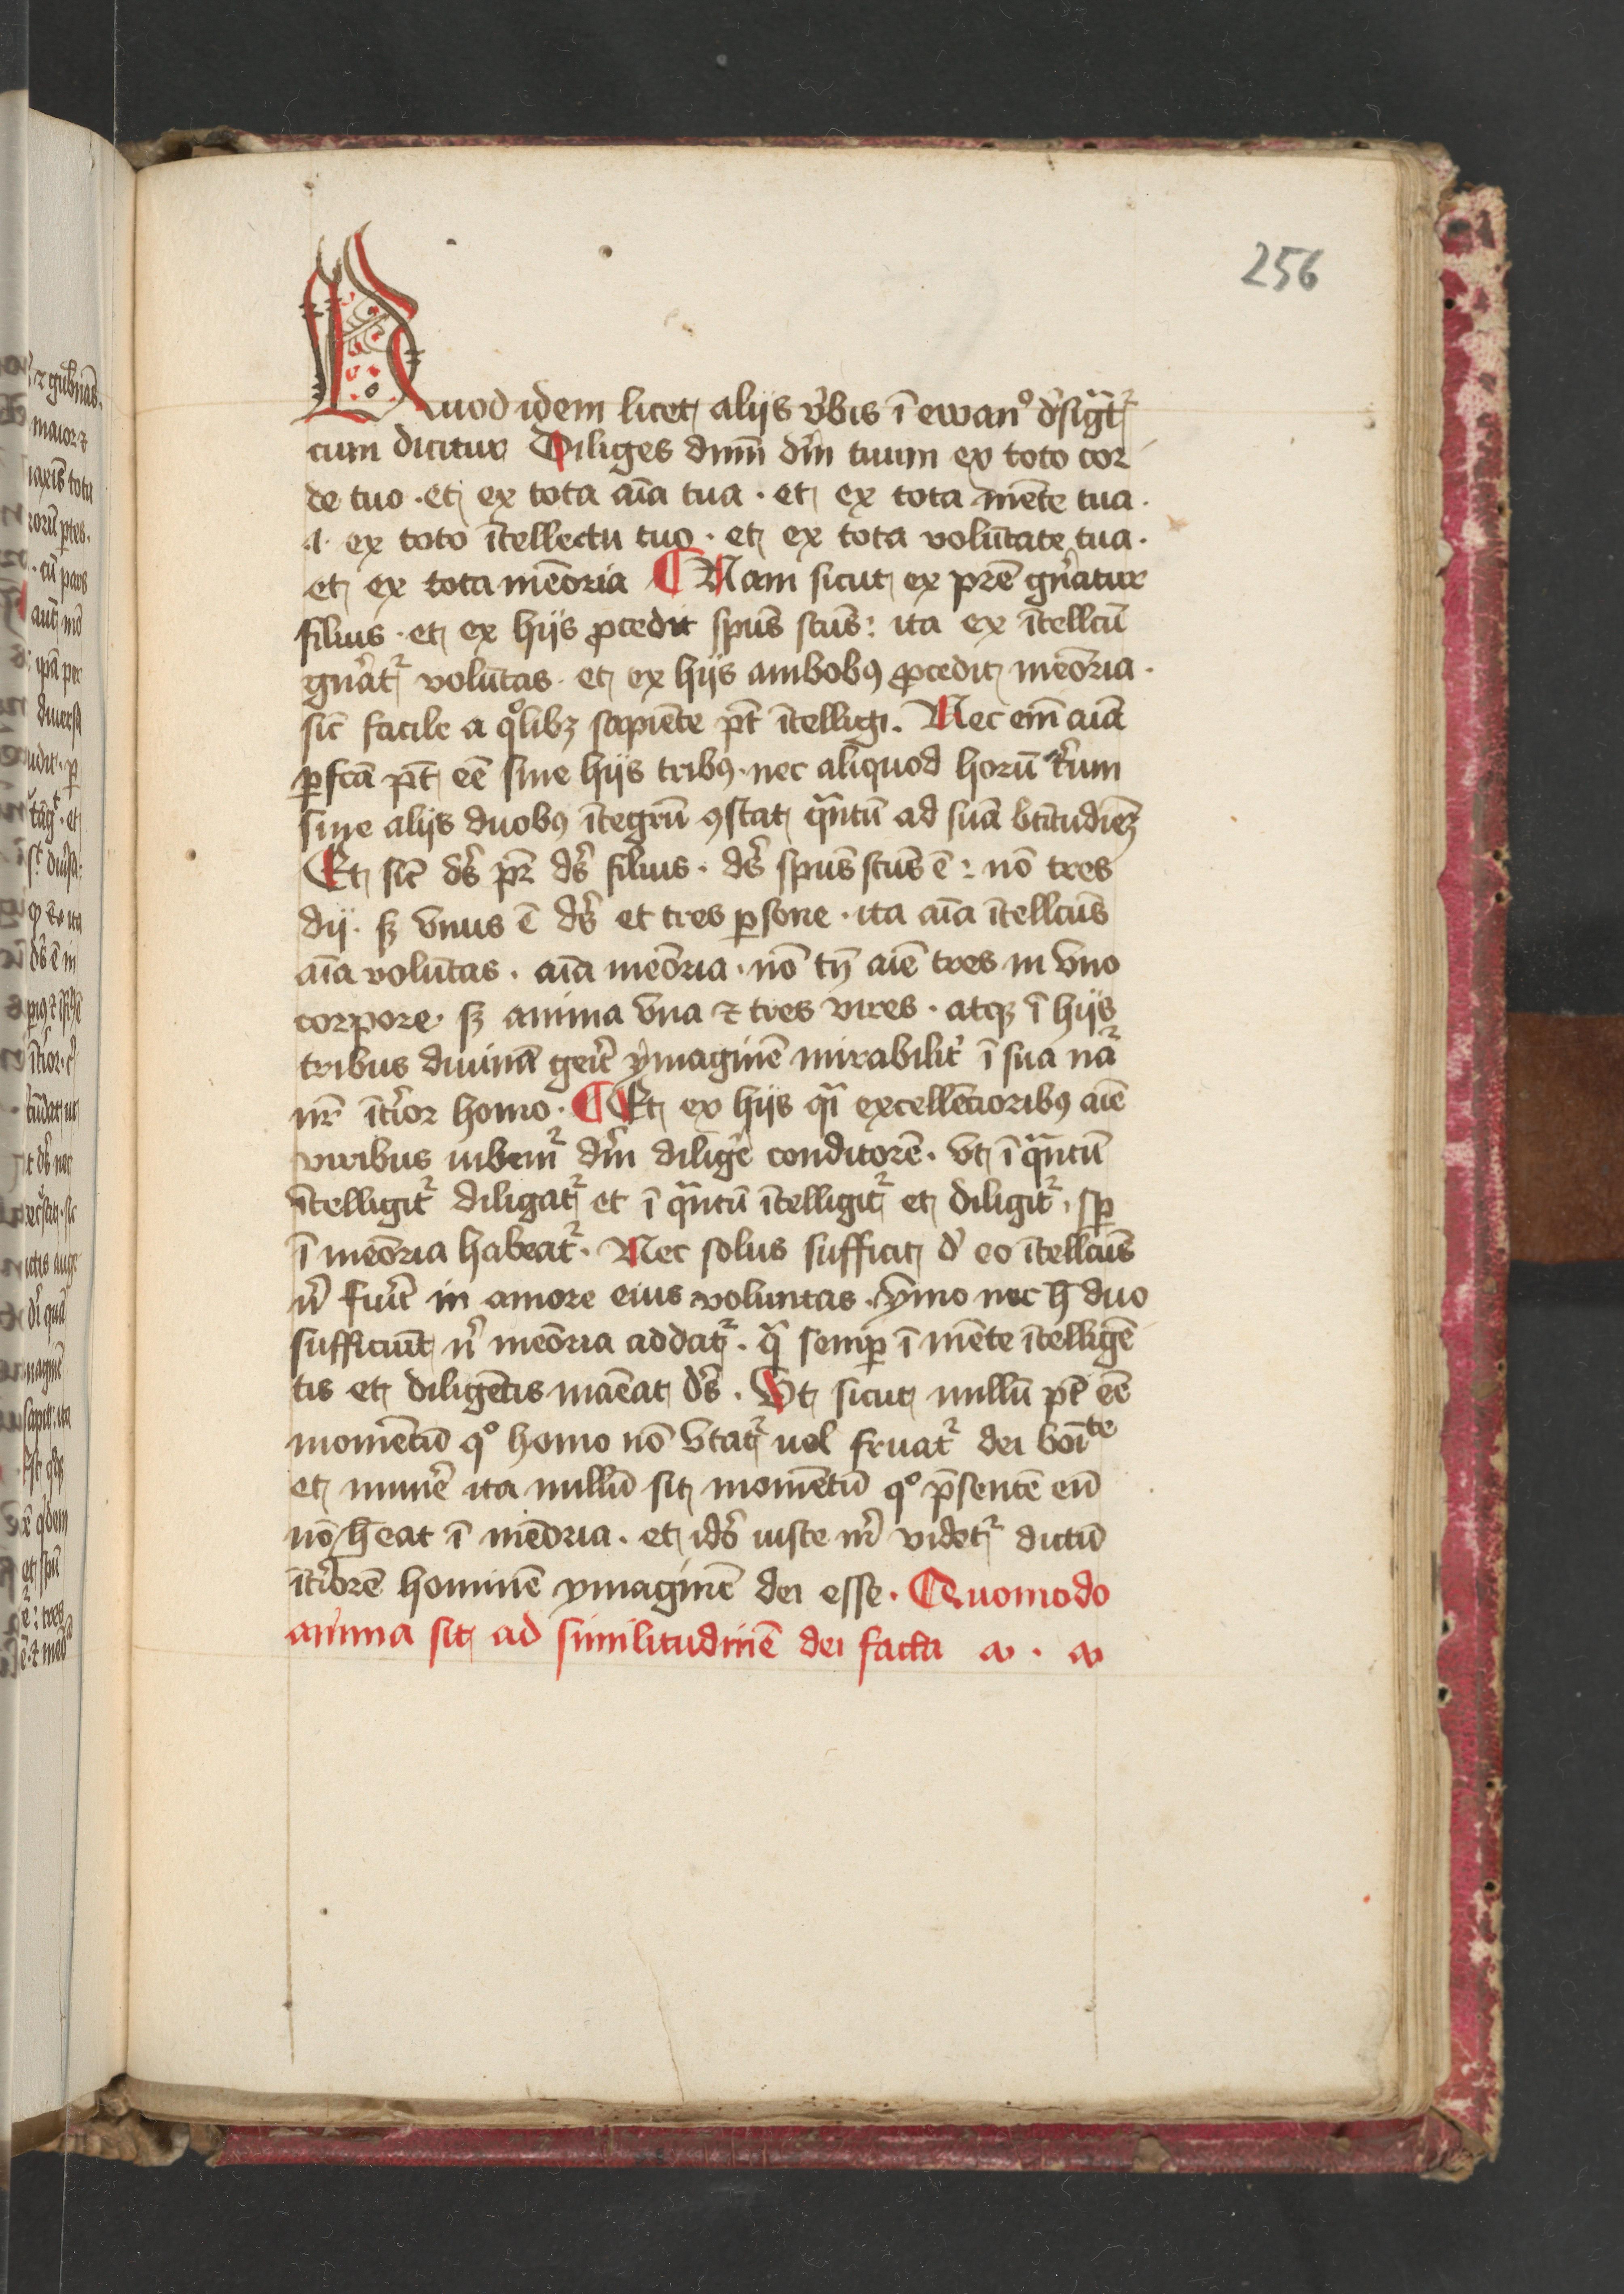 256
Quod idem licet alijs v̓bis ī ewan° d̓sig̃tꝛ
cum dicitur Diliges dnm̄ dm̄ tuum ex toto cor
de tuo · et ex tota aīa tua · et ex tota mēte tua ·
.i. ex toto ītellectu tuo · et ex tota volūtate tua ·
et ex tota mēoria ¶ Nam sicut ex pr̄e gn̄atur
filius · et ex hijs ꝓcedit spūs scūs : ita ex ītellcū
gn̄atꝛ volūtas · et ex hijs ambobꝯ ꝓcedit mēoria ·
sic̄ facile a qͦlibꝫ sapiēte pt̄ ītelligi . Nec em̄ aīa
ꝑfcā pt̄ eē sine hijs tribꝯ · nec aliquod horū t̓um
sine alijs duobꝯ ītegrū ꝯstat qᷓntū ad suā btītudīeꝫ
Et sic̄ ds̄ pr̄ ds̄ filius · ds̄ spūs scūs ē : nō tres
dij · sꝫ vnus ē ds̄ et tres ꝑsone · ita aīa ītellcūs
aīa volūtas · aīa mēoria · nō tn̄ aīe tres in vno
corpore · sꝫ anima vna ⁊ tres vires · atqꝫ ī hijs
tribus diuinā ger̄it ymaginē mirabilit̓ ī sua nāꝛ
nr̄ īt̓ior homo · ¶ Et ex hijs qᷓi excellētioribꝯ aīe
viribus iubemꝛ dm̄ dilig̓e conditorē · vt ī qᷓntū
ītelligitꝛ diligatꝛ et ī qᷓntū ītelligitꝛ et diligitꝛ · sꝑ
ī mēoria habeatꝛ · Nec solus sufficit d̓ eo ītellcūs
n̓ fu̓it in amore eius voluntas · ymo nec h̄ duo
sufficiūt n̓ mēoria addatꝛ · qᷓ semꝑ ī mēte ītelligē
tis et diligētis maēat ds̄ . Vt sicut nullū pt̄ eē
momētū qͦ homo nō vtatꝛ uel fruatꝛ dei boīte
et mun̓e ita nullū sit momētū qͦ p̄sentē eū
nō h̄eat ī mēoria · et idō iuste m̓ videtꝛ dictū
īt̓iorē hominē ymaginē dei esse · Quomodo
anima sit ad similitudinē dei facta